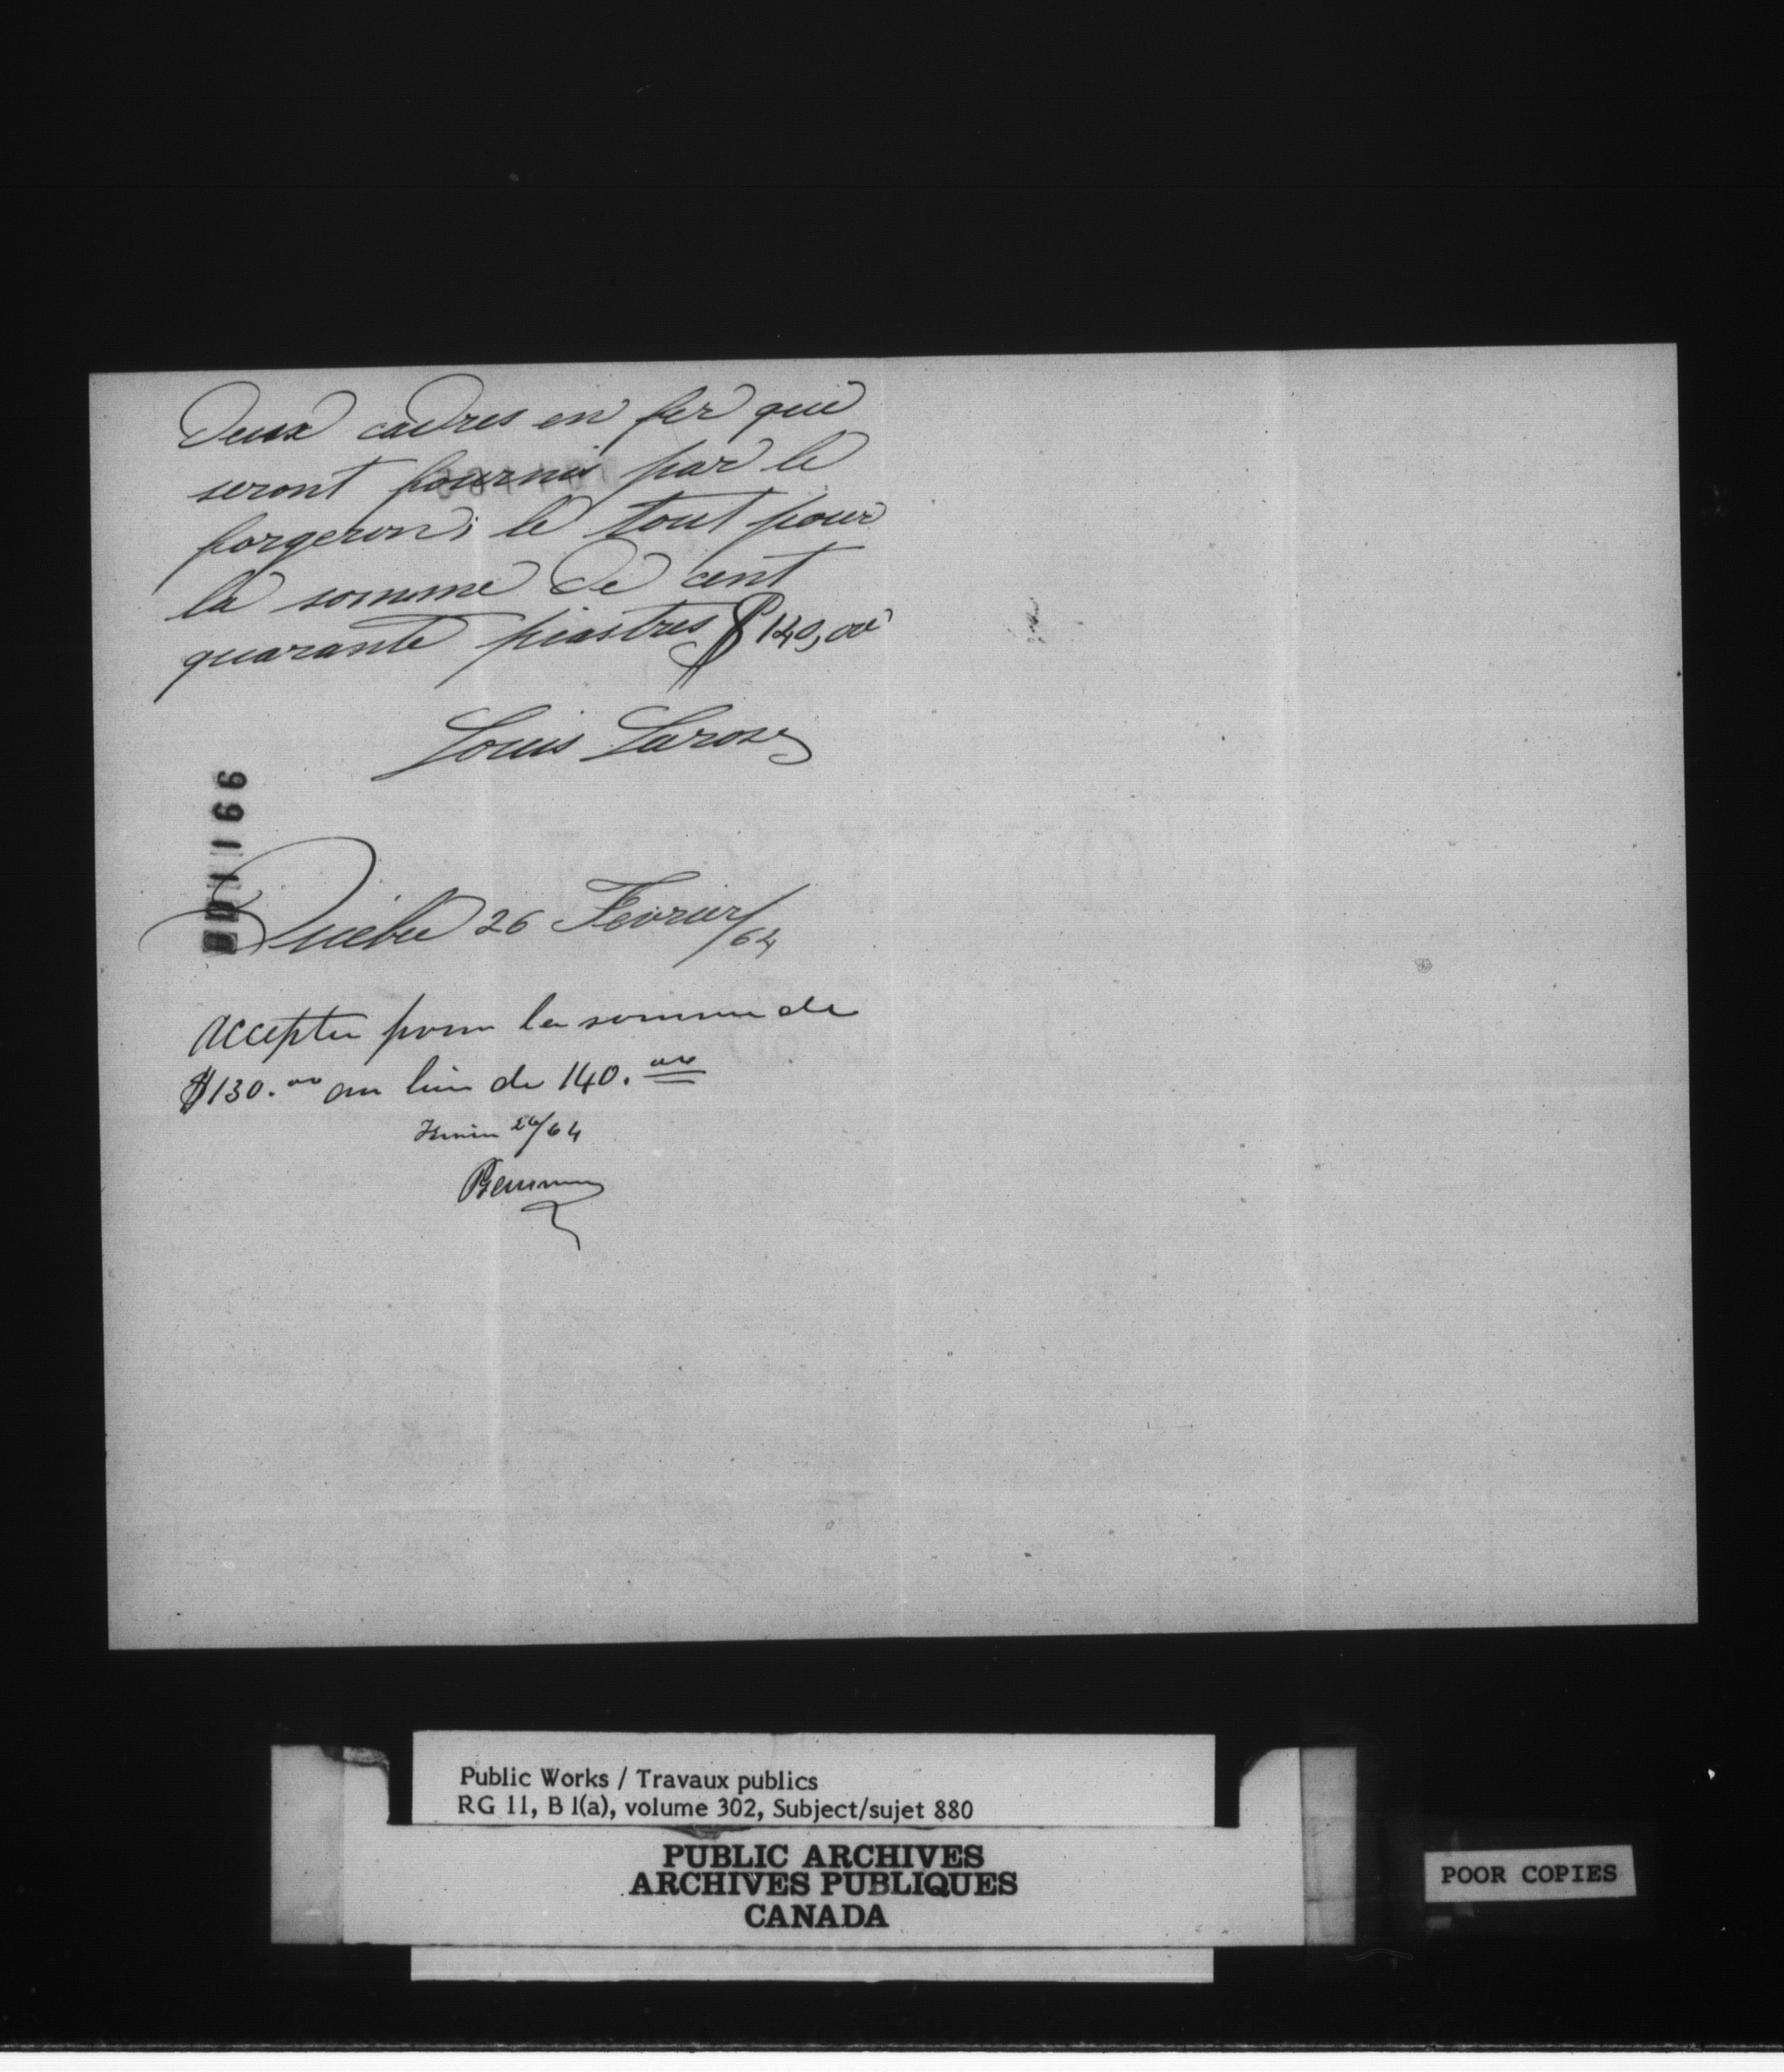 Deux cadres en fer qui
seront fournis par le
forgeron; le tout pour
la somme de cent
quarante piastres $140,00
Louis Larose
1166
Québec 26 Fevrier/64
Accepter pour la somme de
$130.00 au lieu de 140.00
26/64
Public Works / Travaux publics
RG 11, B 1(a), volume 302, Subject/sujet 880
PUBLIC ARCHIVES
ARCHIVES PUBLIQUES
CANADA
POOR COPIES